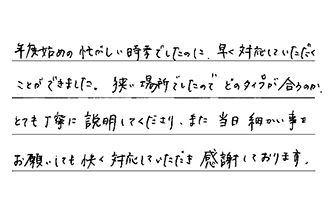 年度始めの忙しい時季でしたのに、早く対応していただく
ことができました。狭い場所でしたので どのタイプが合うのか、
とても丁寧に説明してくださり、また当日細かい事を
お願いしても快く対応していただき感謝しております。